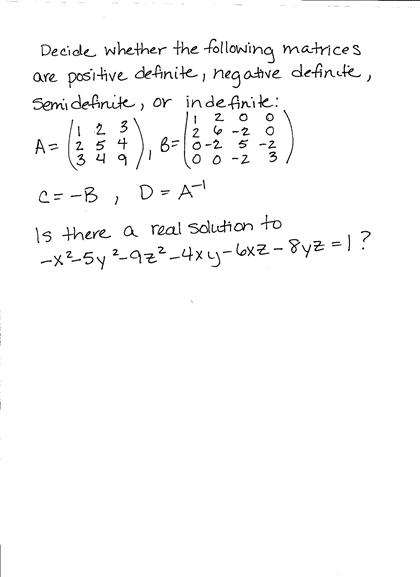 Decide whether the following matrices
are positive definite, negative definite,
semidefinite, or indefinite:
A = (1 2 3
2 5 4
3 4 9), B = (1 2 0 0
2 6 -2 0
0 -2 5 -2
0 0 -2 3)
C = -B , D = A⁻¹
Is there a real solution to
-x²-5y²-9z²-4xy-6xz-8yz=1?